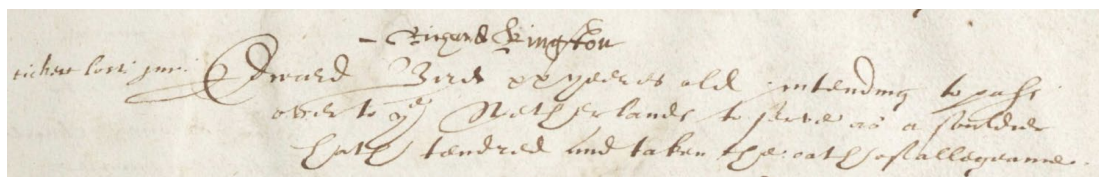 - Richard Kington
Edward Bird xx yeeres old intending to passe
over to ye Netherlands to serve as a souldier
hath tendred and taken the oath of allegeanne.